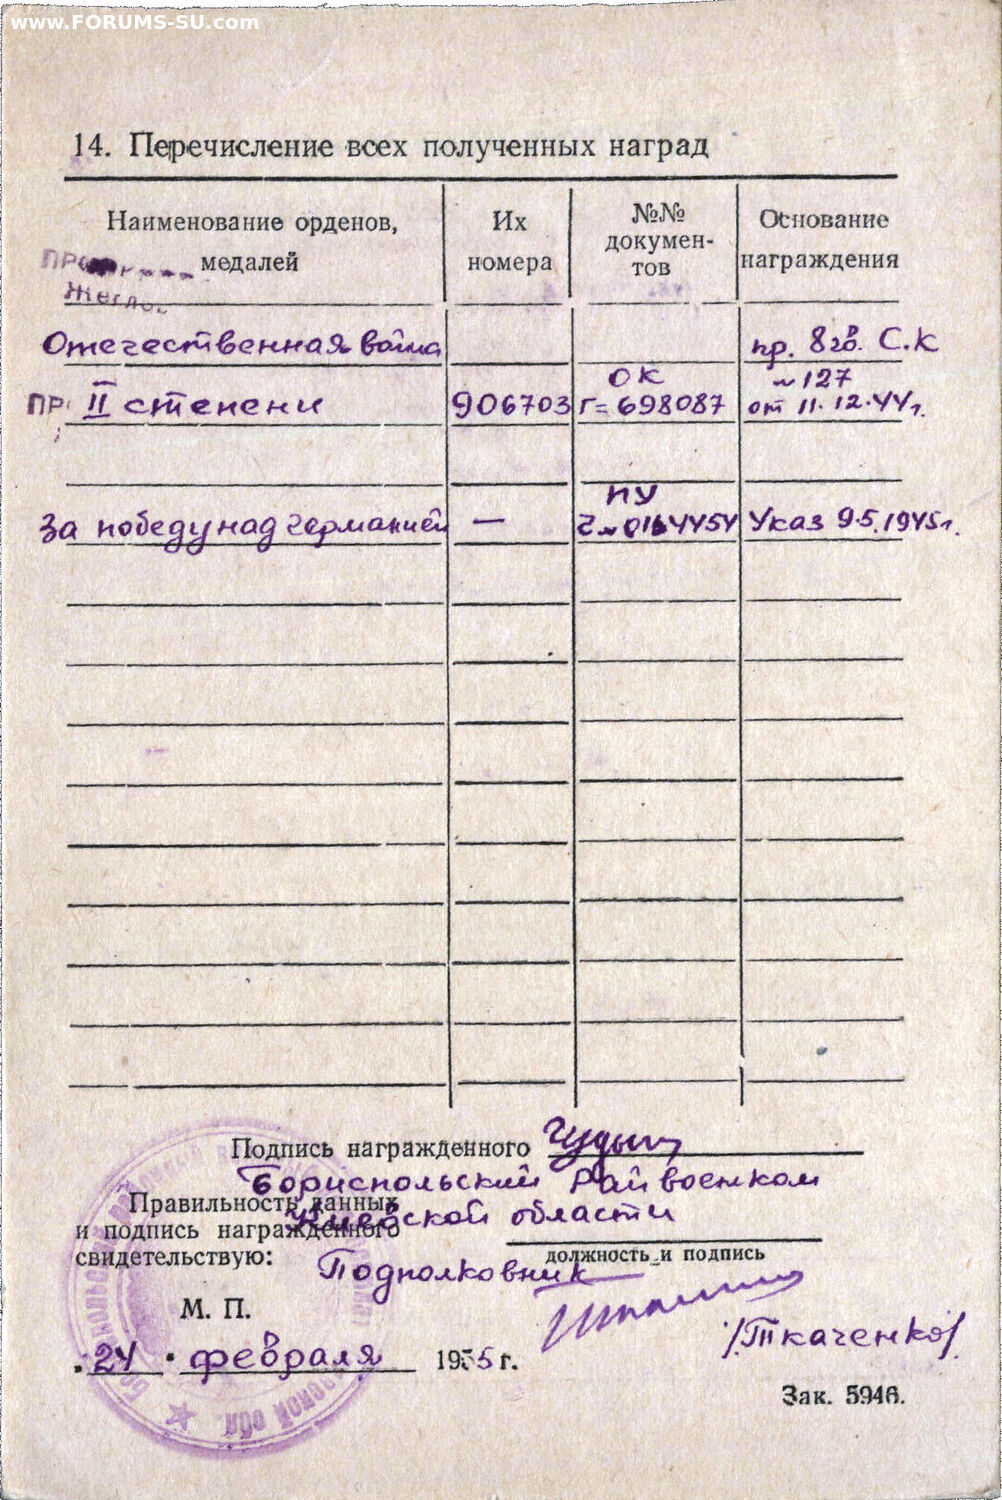 www.FORUMS-SU.com
14. Перечисление всех полученных наград
Наименование орденов, медалей
Их номера
№№ докумен-тов
Основание награждения
Отечественная война
пр. 8 гв. С.К
ОК
№127
II степени
906703
Г= 698087
от 11.12.44г.
ПУ
За победу над германией
—
Указ 9.5.1945г.
Подпись награжденного
Бориспольский Райвоенком
Правильность данных
Киевской области
и подпись награжденного
свидетельствую:
должность и подпись
Подполковник
М. П.
/Ткаченко/
"24" февраля 1955 г.
Зак. 5946.